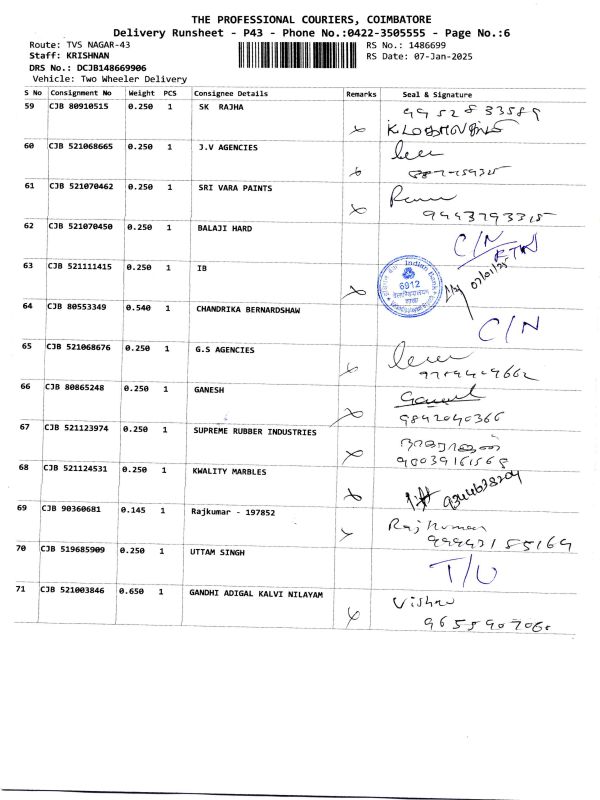 THE PROFESSIONAL COURIERS, COIMBATORE
Delivery Runsheet - P43 - Phone No.:0422-3505555 - Page No.:6
Route: TVS NAGAR-43 RS No.: 1486699
Staff: KRISHNAN RS Date: 07-Jan-2025
DRS No.: DCJB148669906
Vehicle: Two Wheeler Delivery
S No Consignment No Weight PCS Consignee Details Remarks Seal & Signature
59 CJB 80910515 0.250 1 SK RAJHA 9952833589
60 CJB 521068665 0.250 1 J.V AGENCIES
61 CJB 521070462 0.250 1 SRI VARA PAINTS
9443793315
62 CJB 521070450 0.250 1 BALAJI HARD C/N
RTN
63 CJB 521111415 0.250 1 IB Indian Bank 6912 07/01/25
64 CJB 80553349 0.540 1 CHANDRIKA BERNARDSHAW
C/N
65 CJB 521068676 0.250 1 G.S AGENCIES
66 CJB 80865248 0.250 1 GANESH
9842040366
67 CJB 521123974 0.250 1 SUPREME RUBBER INDUSTRIES
90039161569
68 CJB 521124531 0.250 1 KWALITY MARBLES
69 CJB 90360681 0.145 1 Rajkumar - 197852 Rajkumar
99943155169
70 CJB 519685909 0.250 1 UTTAM SINGH T/U
71 CJB 521003846 0.650 1 GANDHI ADIGAL KALVI NILAYAM Vishnu
9655907060